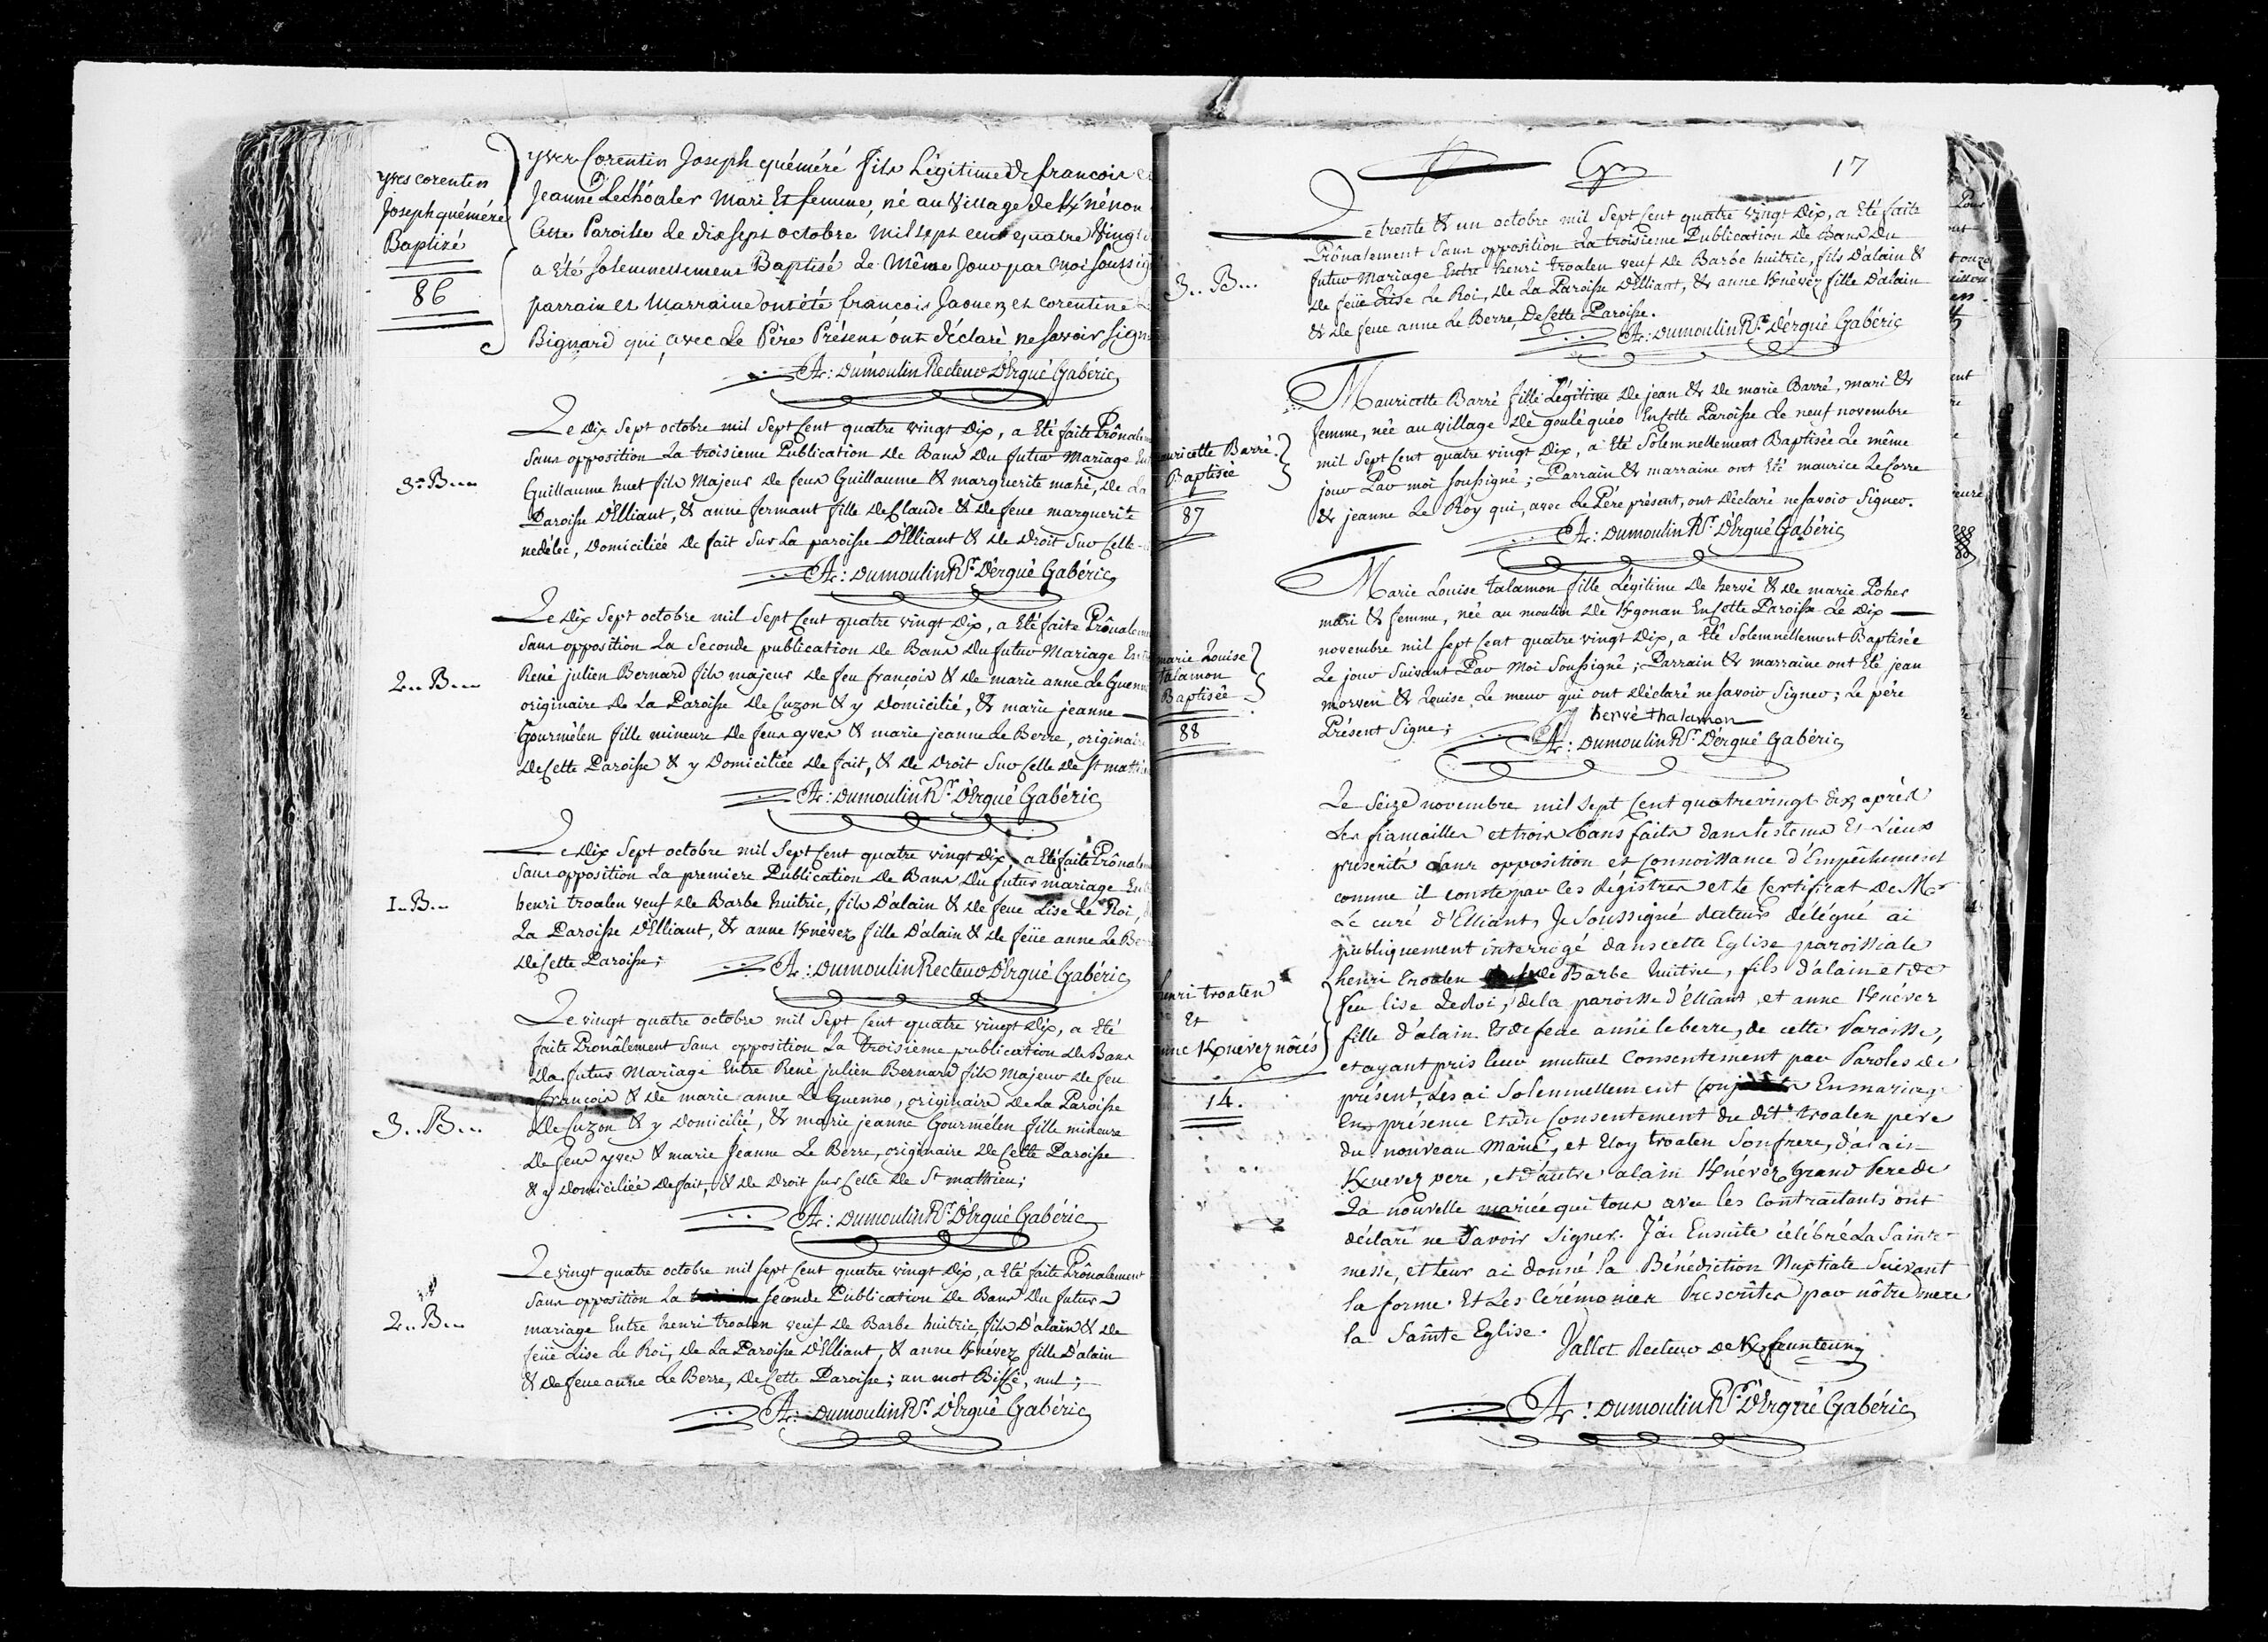 yves corentin
Joseph quéméré
Baptizé
86
yves Corentin Joseph quéméré fils Légitime de francois
Jeanne Lechóaler Mari Et femme, né au Village de Kxnénou
Cette Paroisse Le dix sept octobre mil sept cent quatre Vingt
a été solemnellement Baptisé Le Même Jour par moi soussig
parrain et Marraine ont été francois Jaouen et Corentine
Bignard qui avec Le Père Présent ónt déclaré ne savoir sign
A: Dumoulin Recteur D'Ergué Gabéric
3e B...
Le Dix Sept octobre mil Sept Cent quatre vingt Dix, a Eté faite Prônalem
Sans opposition La troisieme Publication de Bans Du futur Mariage Ent
Guillaume huet fils Majeur de feus Guillaume & marguerite mahé, de La
Paroisse D'Elliant, & anne fermant fille de Claude & de feue marguerite
nedélec, Domiciliée de fait Sur La paroisse D'Elliant & de Droit Sur Celle
A: Dumoulin Rr. D'Ergué Gabéric
2.. B...
Le Dix Sept octobre mil Sept Cent quatre vingt Dix, a Eté faite Prônalem
Sans opposition La Seconde publication de Bans Du futur Mariage Ent
René julien Bernard fils majeur de feu françois & de marie anne Le Guenn
originaire de La Paroisse de Cuzon & y Domicilié, & marie jeanne
Gourmélen fille mineure de feus yves & marie jeanne Le Berre, originai
de Cette Paroisse & y Domiciliée de fait, & de Droit Sur Celle de St mathi
A: Dumoulin Rr. D'Ergué Gabéric
1.. B...
Le Dix Sept octobre mil Sept Cent quatre vingt Dix, a Eté faite Prônalem
Sans opposition La premiere Publication de Bans Du futur mariage Ent
henri troalen veuf de Barbe huitric, fils D'alain & de feue Lise Le Roi,
La Paroisse D'Elliant, & anne Kxnévez fille D'alain & de feüe anne Le Ber
de Cette Paroisse;
A: Dumoulin Recteur D'Ergué Gabéric
3.. B...
Le vingt quatre octobre mil Sept Cent quatre vingt Dix, a Eté
faite Pronâlement Sans opposition La troisieme publication de Bans
Du futur Mariage Entre René julien Bernard fils Majeur de feu
françois & de marie anne Le Guenno, originaire de La Paroisse
de Cuzon & y Domicilié, & marie jeanne Gourmélen fille mineure
de feus yves & marie Jeanne Le Berre, originaire de Cette Paroisse
& y Domiciliée de fait, & de Droit sur Celle de St mathieu;
A: Dumoulin Rr. D'Ergué Gabéric
2.. B...
Le vingt quatre octobre mil sept Cent quatre vingt Dix, a Eté faite Prônalement
Sans opposition La seconde Publication de Bans Du futur
mariage Entre henri troalen veuf de Barbe huitric fils D'alain & de
feüe Lise Le Roi, de La Paroisse D'Elliant, & anne Kxnévez fille D'alain
& de feue anne Le Berre, de Cette Paroisse; un mot Biffé, nul;
A: Dumoulin Rr. D'Ergué Gabéric
17
3.. B...
Le trente & un octobre mil Sept Cent quatre vingt Dix, a Eté faite
Prônalement Sans opposition La troisieme Publication de Bans Du
futur Mariage Entre henri troalen veuf de Barbe huitric, fils D'alain &
de feüe Lise Le Roi, de La Paroisse D'Elliant, & anne Kxnévez fille D'alain
& de feue anne Le Berre, de Cette Paroisse.
A: Dumoulin Rr. D'érgué Gabéric
auricette Barré
Baptisée
87
Mauricette Barré fille Légitime de jean & de marie Barré, mari &
femme, née au village de gouléquéo En Cette Paroisse Le neuf novembre
mil Sept Cent quatre vingt Dix, a Eté Solemnellement Baptisée Le même
jour Par moi Soussigné; Parrain & marraine ont Eté maurice Le Corre
& jeanne Le Roy qui, avec Le Pére présent, ont déclaré ne savoir Signer.
A: Dumoulin Rr. D'Ergué Gabéric
marie Louise
talamon
Baptisée
88
Marie Louise talamon fille Légitime de hervé & de marie Poher
mari & femme, née au moulin de Kxgonan En Cette Paroisse Le Dix
novembre mil sept Cent quatre vingt Dix, a Eté Solemnellement Baptisée
Le jour Suivant Par Moi Soussigné; Parrain & marraine ont Eté jean
morven & Louise Le meur qui ont Déclaré ne savoir Signer; Le pére
Présent Signe;
hervé thalamon
A: Dumoulin Rr. D'érgué Gabéric
henri troalen
Et
anne Kxnevez nôcés
14.
Le Seize novembre mil Sept Cent quatre vingt dix, aprés
Les fiancailles et trois bans faits dans les tems Es Lieux
prescrits sans opposition et Connoissance d'Empêchement
comme il conste par les Régistres et le Certificat de Mr
Le curé d'Elliant, Je Soussigné Recteur délégué ai
publiquement interrogé dans cette Eglise paroissiale
henri troalen de Barbe huitric, fils d'alain et de
feu lise Le Roi, de la paroisse d'Elliant, et anne Kxnévez
fille d'alain Et de feue anne le berre, de cette Paroisse,
et ayant pris leur mutuel Consentement par Paroles de
présent, Les ai Solemnellement En mariage
En présence Et du Consentement du dit troalen pere
du nouveau Marié, et Eloy troalen Son frere, d'alain
Kxnevez pere, et d'autre alain Kxnévez grand Pere de
La nouvelle mariée qui tous avec les Contractants ont
déclaré ne Savoir Signer. J'ai Ensuite célébré La Sainte
messe, et leur ai donné la Bénédiction Nuptiale Suivant
la forme Et Les Cérémonies Prescrites par nôtre mere
la Sainte Eglise.
Vallet Recteur de Kxfeunteun
A: Dumoulin Rr. D'Ergué Gabéric